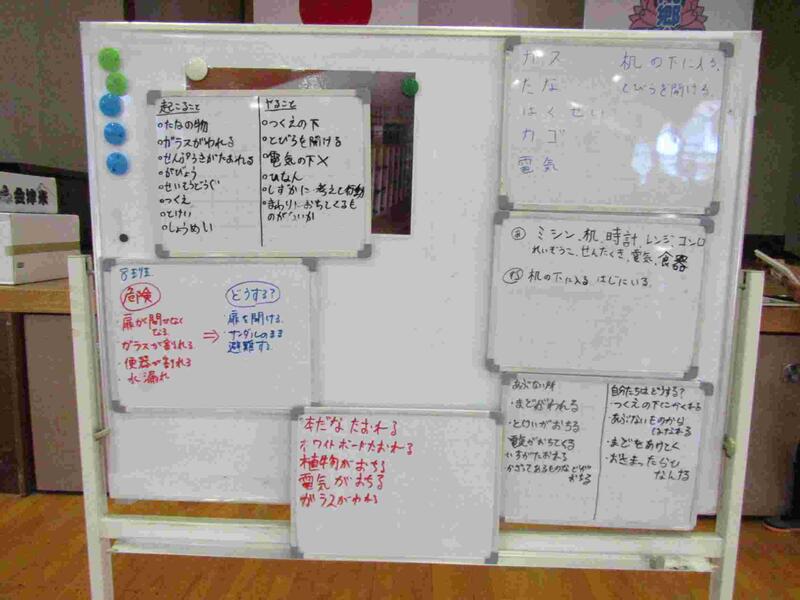 郷
会津米
起こること
・たなの物
・ガラスがわれる
・せんぷうきがたおれる
・がびょう
・せいそうどうぐ
・つくえ
・とけい
・しょうめい
やること
・つくえの下
・とびらを開ける
・電気の下×
・ひなん
・しずかに考えて行動
・まわりにおちてくるも
のがないか
ガス
たな
はくせい
カゴ
電気
机の下に入る。
とびらを開ける。
ミシン、机、時計、レンジ、コンロ
れいぞうこ、せんたくき、電気、食器
机の下に入る、はじにいる。
危険
扉が開かなく
なる
・ガラスが割れる
・便器が割れる
・水漏れ
⇒
どうする?
・扉を開ける
・サンダルのまま
避難する
本だな たおれる
ホワイトボードたおれる
植物がおちる
電気がおちる
ガラスがわれる
あぶない所
・まどがわれる
・とけいがおちる
・電気がおちてくる
・いすがたおれる
・かざってあるものなどが
おちる
自分たちはどうする?
・つくえの下にかくれる
・あぶないものから
はなれる
・まどをあけとく
・おさまったらひ
なんする